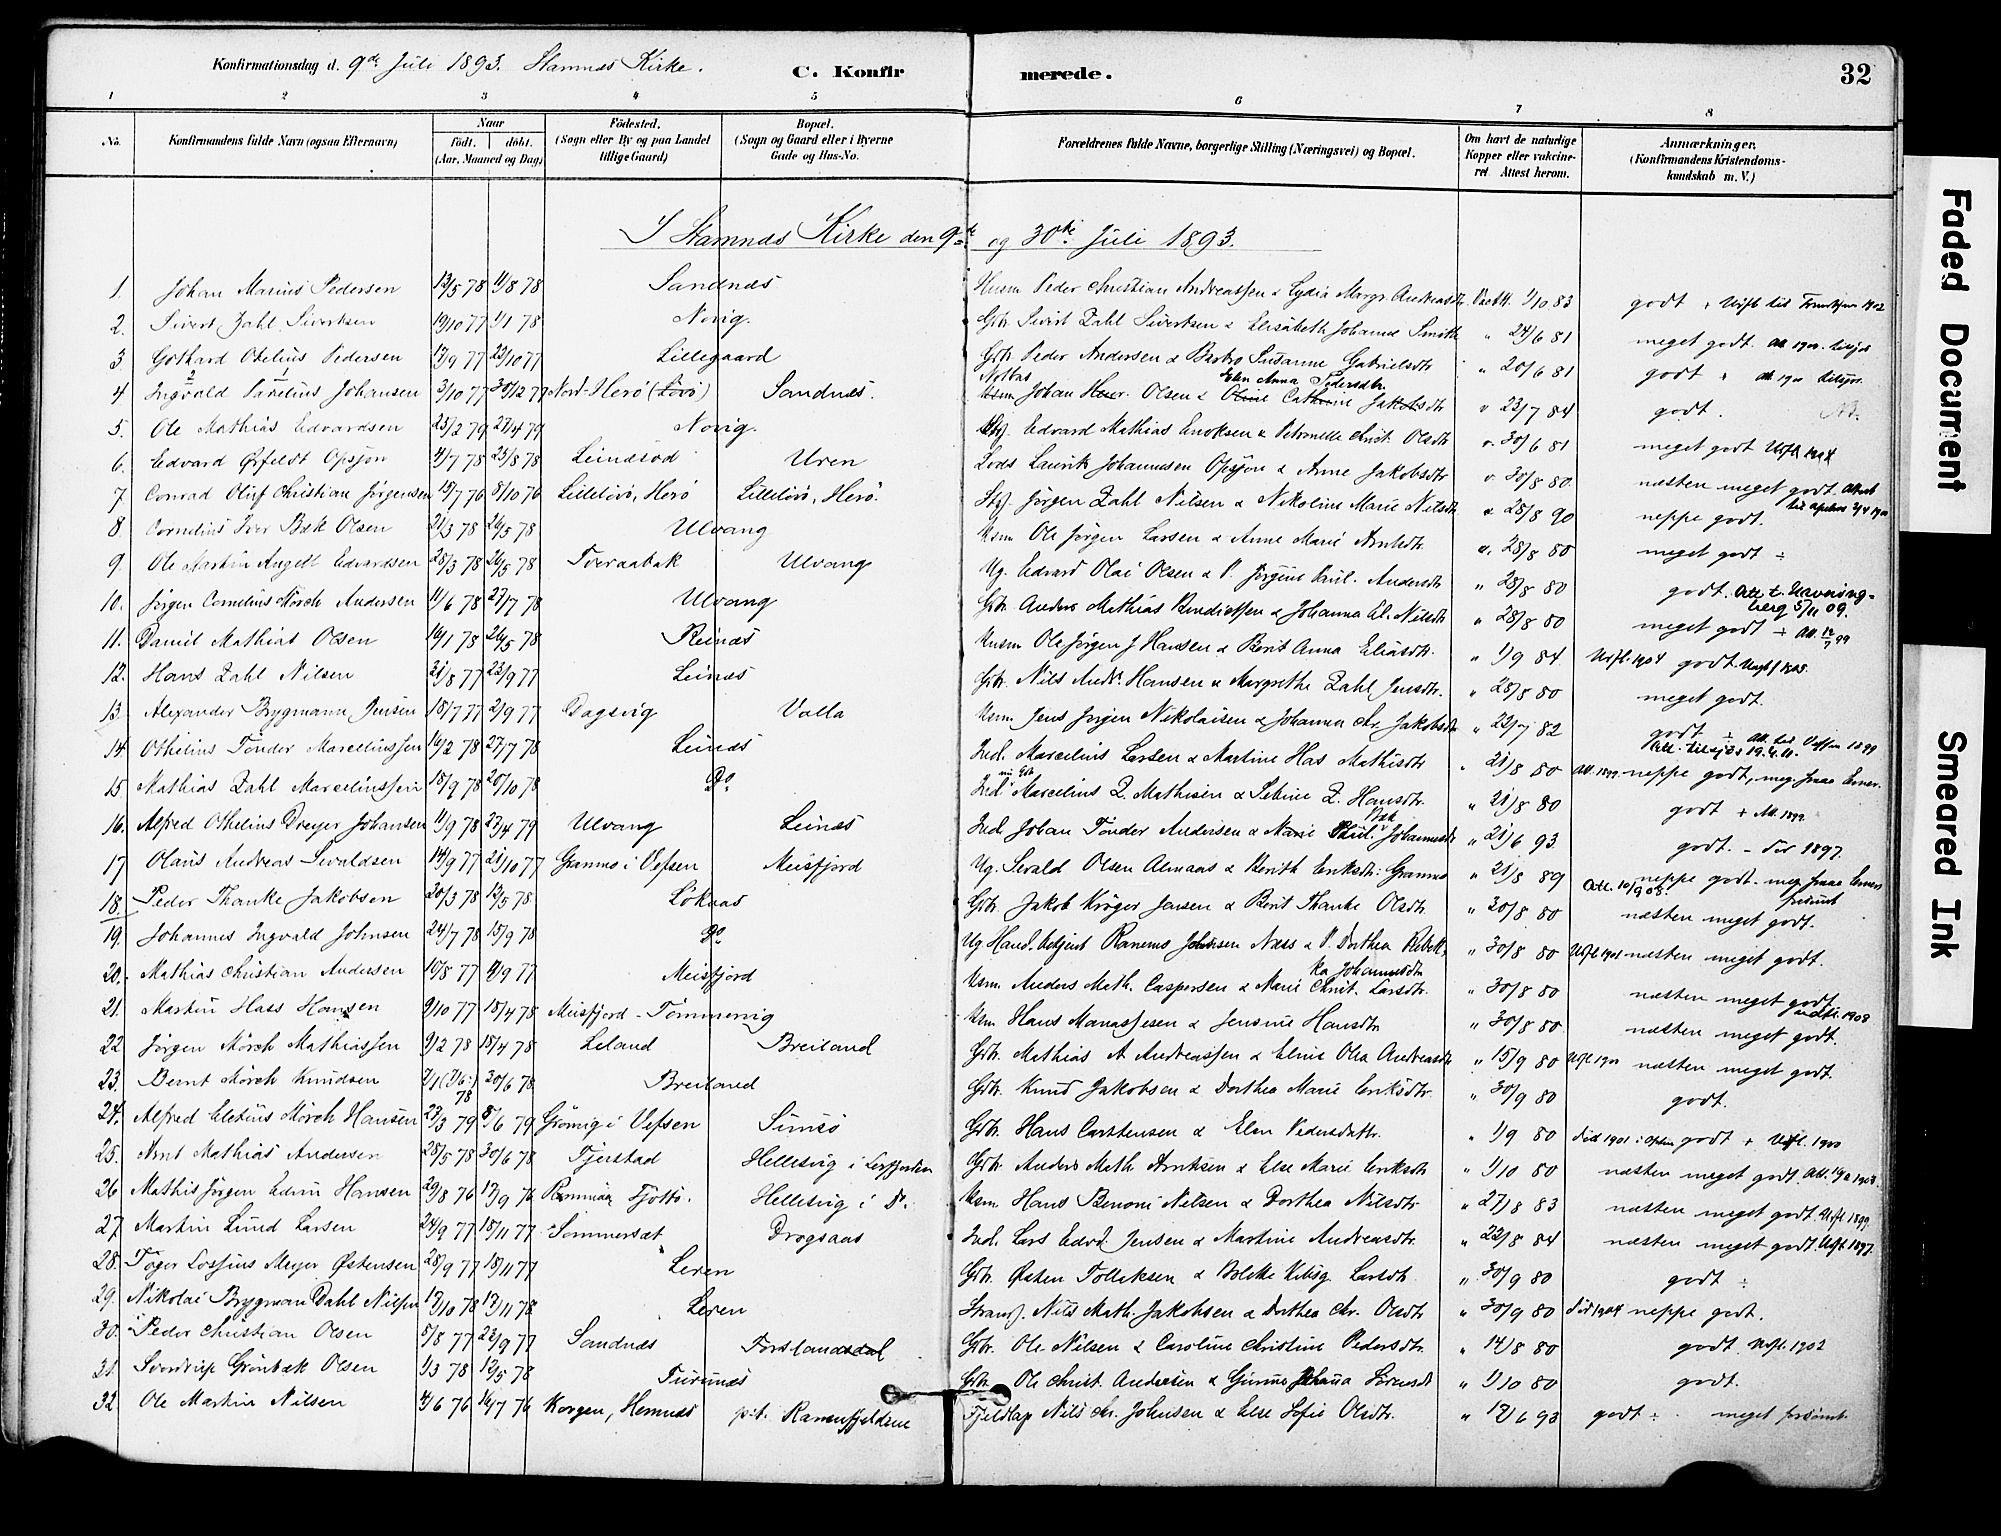 Konfirmationsdag d. 9de Juli 1893. Stamnæs Kirke. C. Konfirmerede. 32
1 2 3 4 5 6 7 8
No. Konfirmandens fulde Navn (ogsaa Efternavn) Naar født. døbt. (Aar, Maaned og Dag) Fødested. (Sogn eller By og paa Landet tillige Gaard) Bopæl. (Sogn og Gaard eller i Byerne Gade og Hus-No. Forældrenes fulde Navne, borgerlige Stilling (Næringsvei) og Bopæl. Om havt de naturlige Kopper eller vakcineret Attest herom. Anmærkninger. (Konfirmandens Kristendomskundskab m. V.)
I Stamnæs Kirke den 9de og 30te Juli 1893.
1. Johan Marius Pedersen 13/5 78 11/8 78 Sandnæs Husm Peder Christian Andreassen & Lydia Margr. Andreasdtr. Vact. 1/10 83 godt
2. Sivert Zahl Sivertsen 19/10 77 1/1 78 Novig. Gbr. Sivert Zahl Sivertsen & Elisabeth Johanna Smith " 24/6 81 meget godt.
3 Gothard Otelius Pedersen 17/9 77 23/10 77 Lillegaard Gbr. Peder Andersen & Susanne Gabrielsdtr " 20/6 81 godt
4 Ingvald Parelius Johansen 3/10 77 30/12 77 Nord-Herø (Lovø) Sandnæs. Johan Olsen & Elen Anna Pedersdtr. 23/7 84 godt.
5. Ole Mathias Edvardsen 25/2 79 27/4 79 Novig. Edvard Mathias Enoksen & Petronelle Christ. Olsdtr 30/6 81 meget godt
6. Edvard Ørfeldt Opsjøn 4/7 78 25/8 78 Leindsod Uren Lods Laurits Johannesen Opsjøn & Anne Jakobsdtr 30/8 80 næsten meget godt.
7 Conrad Oluf Christian Jørgensen 15/7 76 8/10 76 Lilleløvø, Herø Lilleløvø, Herø. Jørgen Zahl Nilsen & Nikoline Marie Nilsdtr 25/8 90 neppe godt.
8 Cornelius Iver Bæk Olsen 21/3 78 26/5 78 Ulvang Husm Ole Jørgen Larsen & Anne Marie Arntsdtr. 28/8 80 meget godt
9. Ole Martin Angell Edvardsen 28/3 78 26/5 78 Tveraabæk Ulvang Ug. Edvard Olai Olsen & P. Jørgine Paul. Andersdtr " 28/8 80 godt.
10. Jørgen Cornelius Mørch Andersen 11/6 78 27/7 78 Ulvang Gbr. Anders Mathias Benedictsen & Johanna El. Nilsdtr " 28/8 80 meget godt
11. Daniel Mathias Olsen 16/1 78 26/5 78 Reinæs Husm Ole Jørgen J Hansen & Berit Anna Eliasdtr. " 1/9 84 godt
12. Hans Zahl Nilsen 21/8 77 23/9 77 Leinæs Gbr. Nils Andr. Hansen & Margrethe Zahl Jensdtr. " 28/8 80 meget godt.
13. Alexander Brygmann Jensen 18/7 77 2/9 77 Dagsvig Valla Husm Jens Jørgen Nikolaisen & Johanna Chr. Jakobsdtr " 22/7 82 godt
14. Othelius Tønder Marceliussen 16/2 78 27/7 78 Leinæs Ind. Marcelius Larsen & Martine Has Mathisdtr " 21/8 80 neppe godt,
15. Mathias Zahl Marceliussen 15/9 78 20/10 78 Do Ind. Marcelius Z. Mathisen & Sebine Z. Hansdtr. " 21/8 80 godt
16. Alfred Othelius Dreyer Johansen 11/9 78 27/4 79 Ulvang Leinæs Ind. Johan Tønder Andersen & Marie Bæk Johannesdtr " 21/6 93 godt. - Død 1897.
17 Olaus Andreas Sivaldsen 14/9 77 21/10 77 Granmo i Vefsen Meisfjord Ug. Sevald Olsen Almaas & Berith Eriksdtr: Granmo " 21/8 89 neppe godt.
18. Peder Thanke Jakobsen 20/3 78 12/5 78 Løkaas Gbr. Jakob Krøger Jensen & Berit Thanke Olsdtr. " 20/8 80 næsten meget godt.
19. Johannes Ingvald Johnsen 24/7 78 15/9 78 Do Ug Hand. betjent Ranemo Johnsen Næss & P. Dorthea Rebekka Johannesdtr " 30/8 80 næsten meget godt.
20. Mathias Christian Andersen 10/8 77 9/9 77 Meisfjord Husm. Anders Math. Caspersen & Marie Christ. Larsdtr. " 30/8 80 næsten meget godt.
21. Martin Hass Hansen 9/10 77 18/4 78 Meisfjord - Tømmervig Husm. Hans Manassesen & Jensine Hansdtr " 30/8 80 næsten meget godt.
22 Jørgen Mørch Mathiassen 9/2 78 18/4 78 Leland Breiland Gbr. Mathias A Andreassen & Eline Olea Andreasdtr " 15/9 80 næsten meget godt.
23. Bernt Mørch Knudsen 30/6 78 Breiland Gbr. Knud Jakobsen & Dorthea Marie Eriksdtr. " 30/9 80 godt.
24. Alfred Eletius Mørch Hansen 23/3 79 8/6 79 Grønvig i Vefsen Simsø Gbr. Hans Carstensen & Elen Pedersdatter. " 1/9 80 godt
25. Arnt Mathias Andersen 28/5 78 30/6 78 Fjerstad Hellesvig i Leirfjorden Gbr. Anders Math Arntsen & Else Marie Eriksdtr " 1/10 80 næsten meget godt
26 Mathis Jørgen Edvin Hansen 29/8 76 17/9 76 Tjøttø. Hellesvig i Do. Husm. Hans Benoni Nilsen & Dorthea Nilsdtr. " 27/8 83 næsten meget godt.
27. Martin Lund Larsen 24/9 77 18/11 77 Sommersæt Drogsaas Ind. Lars Edvd. Jensen & Martine Andreasdtr. " 22/8 84 næsten meget godt.
28. Tøger Lossius Meyer Østensen 28/9 77 18/11 77 Leren Gbr. Østen Tollefsen & Bolette Larsdtr. " 30/9 80 godt
29. Nikolai Brygman Dahl Nilsen 13/10 78 17/11 78 Leren Strands. Nils Math. Jakobsen & Dorthea Chr. Olsdtr " 30/9 80 Død 1904 neppe godt.
30. Peder Christian Olsen 5/8 77 22/9 77 Sandnæs Forslandsdal Gbr. Ole Nilsen & Caroline Christine Pedersdtr. " 14/8 80 godt. 1902
31. Sverdrup Grønbæk Olsen 1/3 78 12/5 78 Furunæs Gbr. Ole Christ. Andersen & Gunno Johanna Sørensdtr " 1/10 80 godt.
32. Ole Martin Nilsen 4/6 76 16/7 76 Korgen, Hemnæs p.t. Ranenfjeldene Fjeldlap Nils Chr. Johnsen & Else Sofie Olsdtr. " 12/6 93 godt meget forsømt.
Faded Document
Smeared Ink